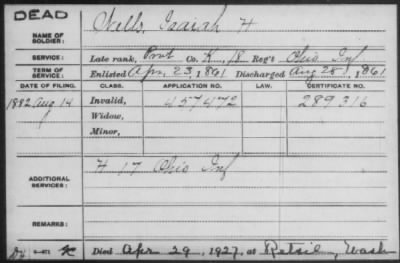 DEAD
NAME OF SOLDIER: Nells, Isaiah H
SERVICE: Late rank, Prvt Co. K, 18 Reg't Ohio Inf
TERM OF SERVICE: Enlisted Apr. 23, 1861 Discharged Aug 28, 1861
DATE OF FILING. CLASS. APPLICATION NO. LAW. CERTIFICATE NO.
1882 Aug 14 Invalid, 457472 289316
Widow,
Minor,
ADDITIONAL SERVICES: H 17 Ohio Inf
REMARKS:
Died Apr 29, 1927, at Retsil, Wash